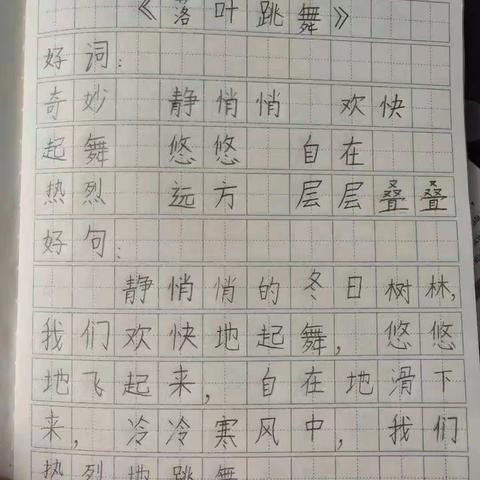 《落叶跳舞》
好词：
奇妙 静悄悄 欢快
起舞 悠悠 自在
热烈 远方 层层叠叠
好句：
静悄悄的冬日树林，
我们欢快地起舞，悠悠
地飞起来，自在地滑下
来，冷冷寒风中，我们
热烈地跳舞